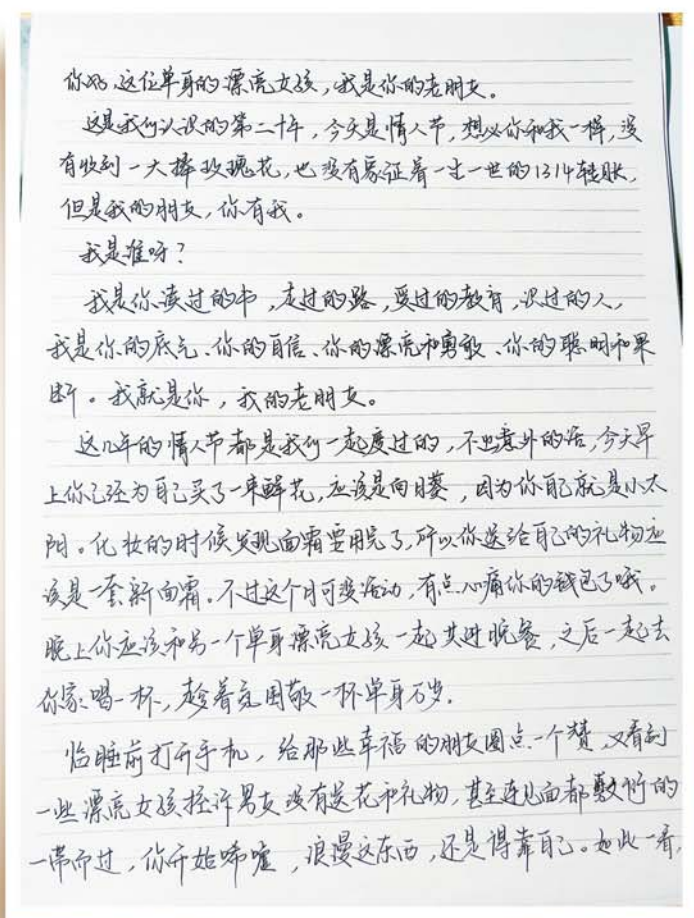 你好,这位单身的漂亮女孩,我是你的老朋友。
这是我们认识的第二十年,今天是情人节,想必你和我一样,没
有收到一大捧玫瑰花,也没有象征着一生一世的1314转账,
但是我的朋友,你有我。
我是谁呀?
我是你读过的书,走过的路,受过的教育,识过的人,
我是你的底气、你的自信、你的漂亮和勇敢、你的聪明和果
断。我就是你,我的老朋友。
这几年的情人节都是我们一起度过的,不出意外的话,今天早
上你已经为自己买了一束鲜花,应该是向日葵,因为你自己就是小太
阳。化妆的时候发现面霜要用完了,所以你送给自己的礼物应
该是一套新面霜。不过这个月可没活动,有点心痛你的钱包了哦。
晚上你应该和另一个单身漂亮女孩一起共进晚餐,之后一起去
你家喝一杯,趁着氛围敬一杯单身万岁。
临睡前打开手机,给那些幸福的朋友圈点一个赞,又看到
一些漂亮女孩控诉男友没有送花和礼物,甚至连见面都敷衍的
一带而过,你开始唏嘘,浪漫这东西,还是得靠自己。如此一看,